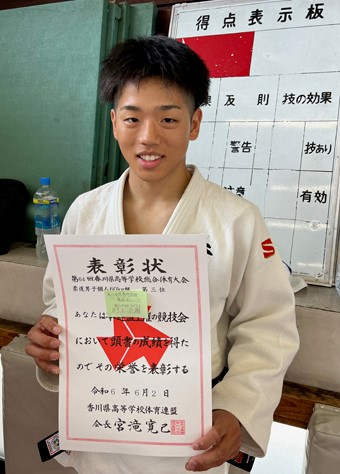 得点表示板
反則
技の効果
警告
技あり
注意
有効
表彰状
第64回香川県高等学校総合体育大会
柔道男子個人60kg級 第三位
あなたは
の競技会
において頭書の成績を得た
のでその栄誉を表彰する
令和6年6月2日
香川県高等学校体育連盟
会長 宮滝寛己